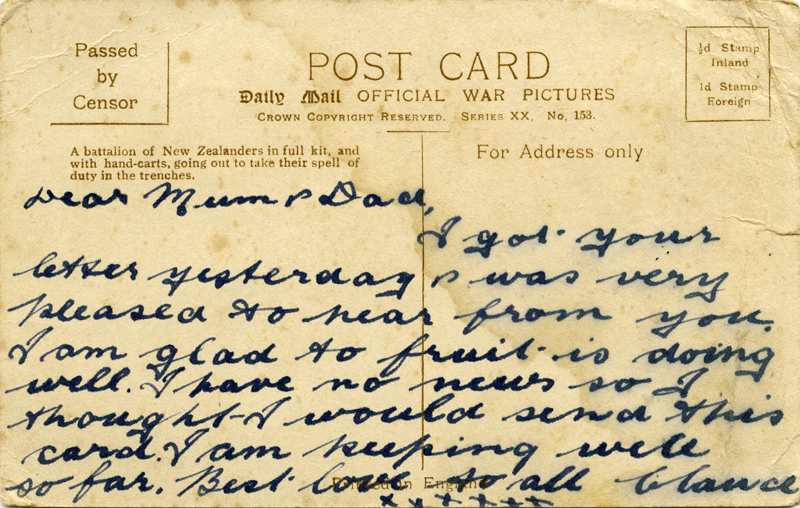 Passed
by
Censor
POST CARD
Daily Mail OFFICIAL WAR PICTURES
CROWN COPYRIGHT RESERVED. SERIES XX. No. 153.
½d Stamp
Inland
1d Stamp
Foreign
A battalion of New Zealanders in full kit, and
with hand-carts, going out to take their spell of
duty in the trenches.
For Address only
Dear Mum & Dad,
I got your
letter yesterday & was very
pleased to hear from you.
I am glad to fruit is doing
well. I have no news so I
thought I would send this
card. I am keeping well
so far. Best love to all Clance
Printed in England
x x x x x x